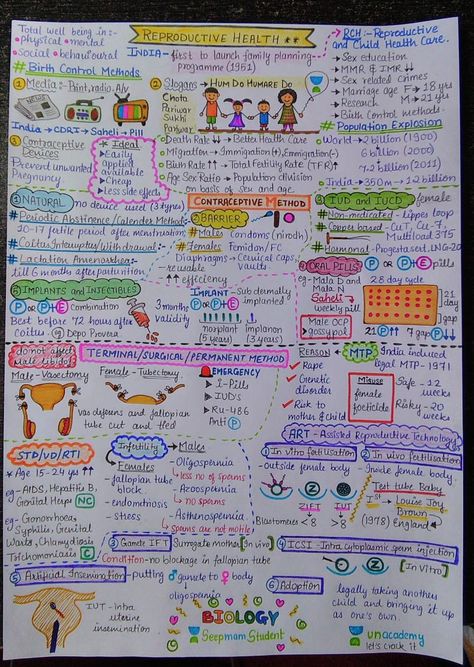 Total well being in:-
• physical • mental
• social • behavioural
REPRODUCTIVE HEALTH **
INDIA- first to launch family planning
programme (1951)
RCH:- Reproductive
and Child Health Care.
→ Sex education
→ MMR & IMR ↓↓
→ Sex related crimes
→ Marriage age F → 18 yrs
M → 21 yrs
→ Research
→ Birth Control methods
# Birth Control Methods
① Media:- Print, radio, A/v
② Slogans → HUM DO HUMARE DO
Chota
Parivar
Sukhi
Parivar
India → CDRI → Saheli → Pill
③ Contraceptive
Devices
Prevent unwanted
Pregnancy
* Ideal
→ Easily
applied
available
→ Cheap
→ Less side effects
• Death Rate ↓↓ → Better Health Care
• Migration → Immigration(+), Emigration(-)
• Birth Rate ↑↑ → Total Fertility Rate (TFR)
• Age Sex Ratio → Population division
on basis of sex and age.
# Population Explosion
World → 2 billion (1900)
6 billion (2000)
7.2 billion (2011)
India → 350 m → 1.2 billion
CONTRACEPTIVE METHOD
① NATURAL no device used (3 types)
# Periodic Abstinence/Calender Method:-
10-17 fertile period after menstruation
# Coitus Interruptus/Withdrawal:-
# Lactation Amenorrhea:-
till 6 months after parturition
② BARRIER
# Males Condoms (nirodh)
# Females Femidon/FC
Diaphragms → Cervical Caps,
vaults
→ reusable
↑↑ efficiency
③ IUD and IUCD female
# Non-medicated - Lippes loop
# Copper based - CuT, Cu-7,
Multiload 375
# Hormonal - Progestasert, LNG-20
④ ORAL PILLS P or P+E pills
eg- Mala D and
Mala N
Saheli ↓
weekly pill
Male OCP
→ gossypol
28 day cycle
21
day
1
gap
21 P ↑↑ 7 gap P ↓↓
⑤ IMPLANTS AND INJECTIBLES
P or P+E Combination
Best before 72 hours after
coitus eg Depo Provera
3 months
validity
IMPLANT → Sub dermally
P or P+E implanted
norplant
(5 years)
implanon
(3 years)
do not affect
male libido
TERMINAL/SURGICAL/PERMANENT METHOD
Male - Vasectomy
Female - Tubectomy
Vas deferens and fallopian
tube cut and tied
EMERGENCY
→ i-Pills
→ IUD's
→ Ru-486
Anti P
REASON
→ Rape
→ Genetic
disorder
→ Risk to
mother & child
MTP India induced
legal MTP - 1971
Misuse
female
foeticide
Safe - 12
weeks
Risky - 20
weeks
STD/VD/RTI
* Age 15-24 yrs ↑↑
eg- AIDS, Hepatitis B,
Genital Herpes NC
eg- Gonorrhoea,
Syphilis, Genital
Warts, Chlamydiasis
Trichomoniasis C
Infertility → Males
Females
→ fallopian tube
block
→ endometriosis
→ stress
→ Oligospermia
→ less no of sperms
→ Azoospermia
→ no sperms
→ Asthenospermia
→ sperms are not motile
ART - Assisted Reproductive Technology
① In vitro fertilisation
→ outside female body
ZIFT
IUT
Blastomeres < 8 > 8
② In vivo fertilisation
Inside female body.
Test tube Baby
Ist → Louise Joy
Brown →
(1978) England
③ Gamete IFT Surrogate mother [In vivo]
Condition- no blockage in fallopian tube
④ ICSI - Intra cytoplasmic sperm injection
[In Vitro]
⑤ Artificial Insemination - putting ♂ gamete to ♀ body
↓
oligospermia
IUT - Intra
uterine
insemination
⑥ Adoption legally taking another
child and bringing it up
as one's own.
BIOLOGY
Seepmam Student
unacademy
let's crack it